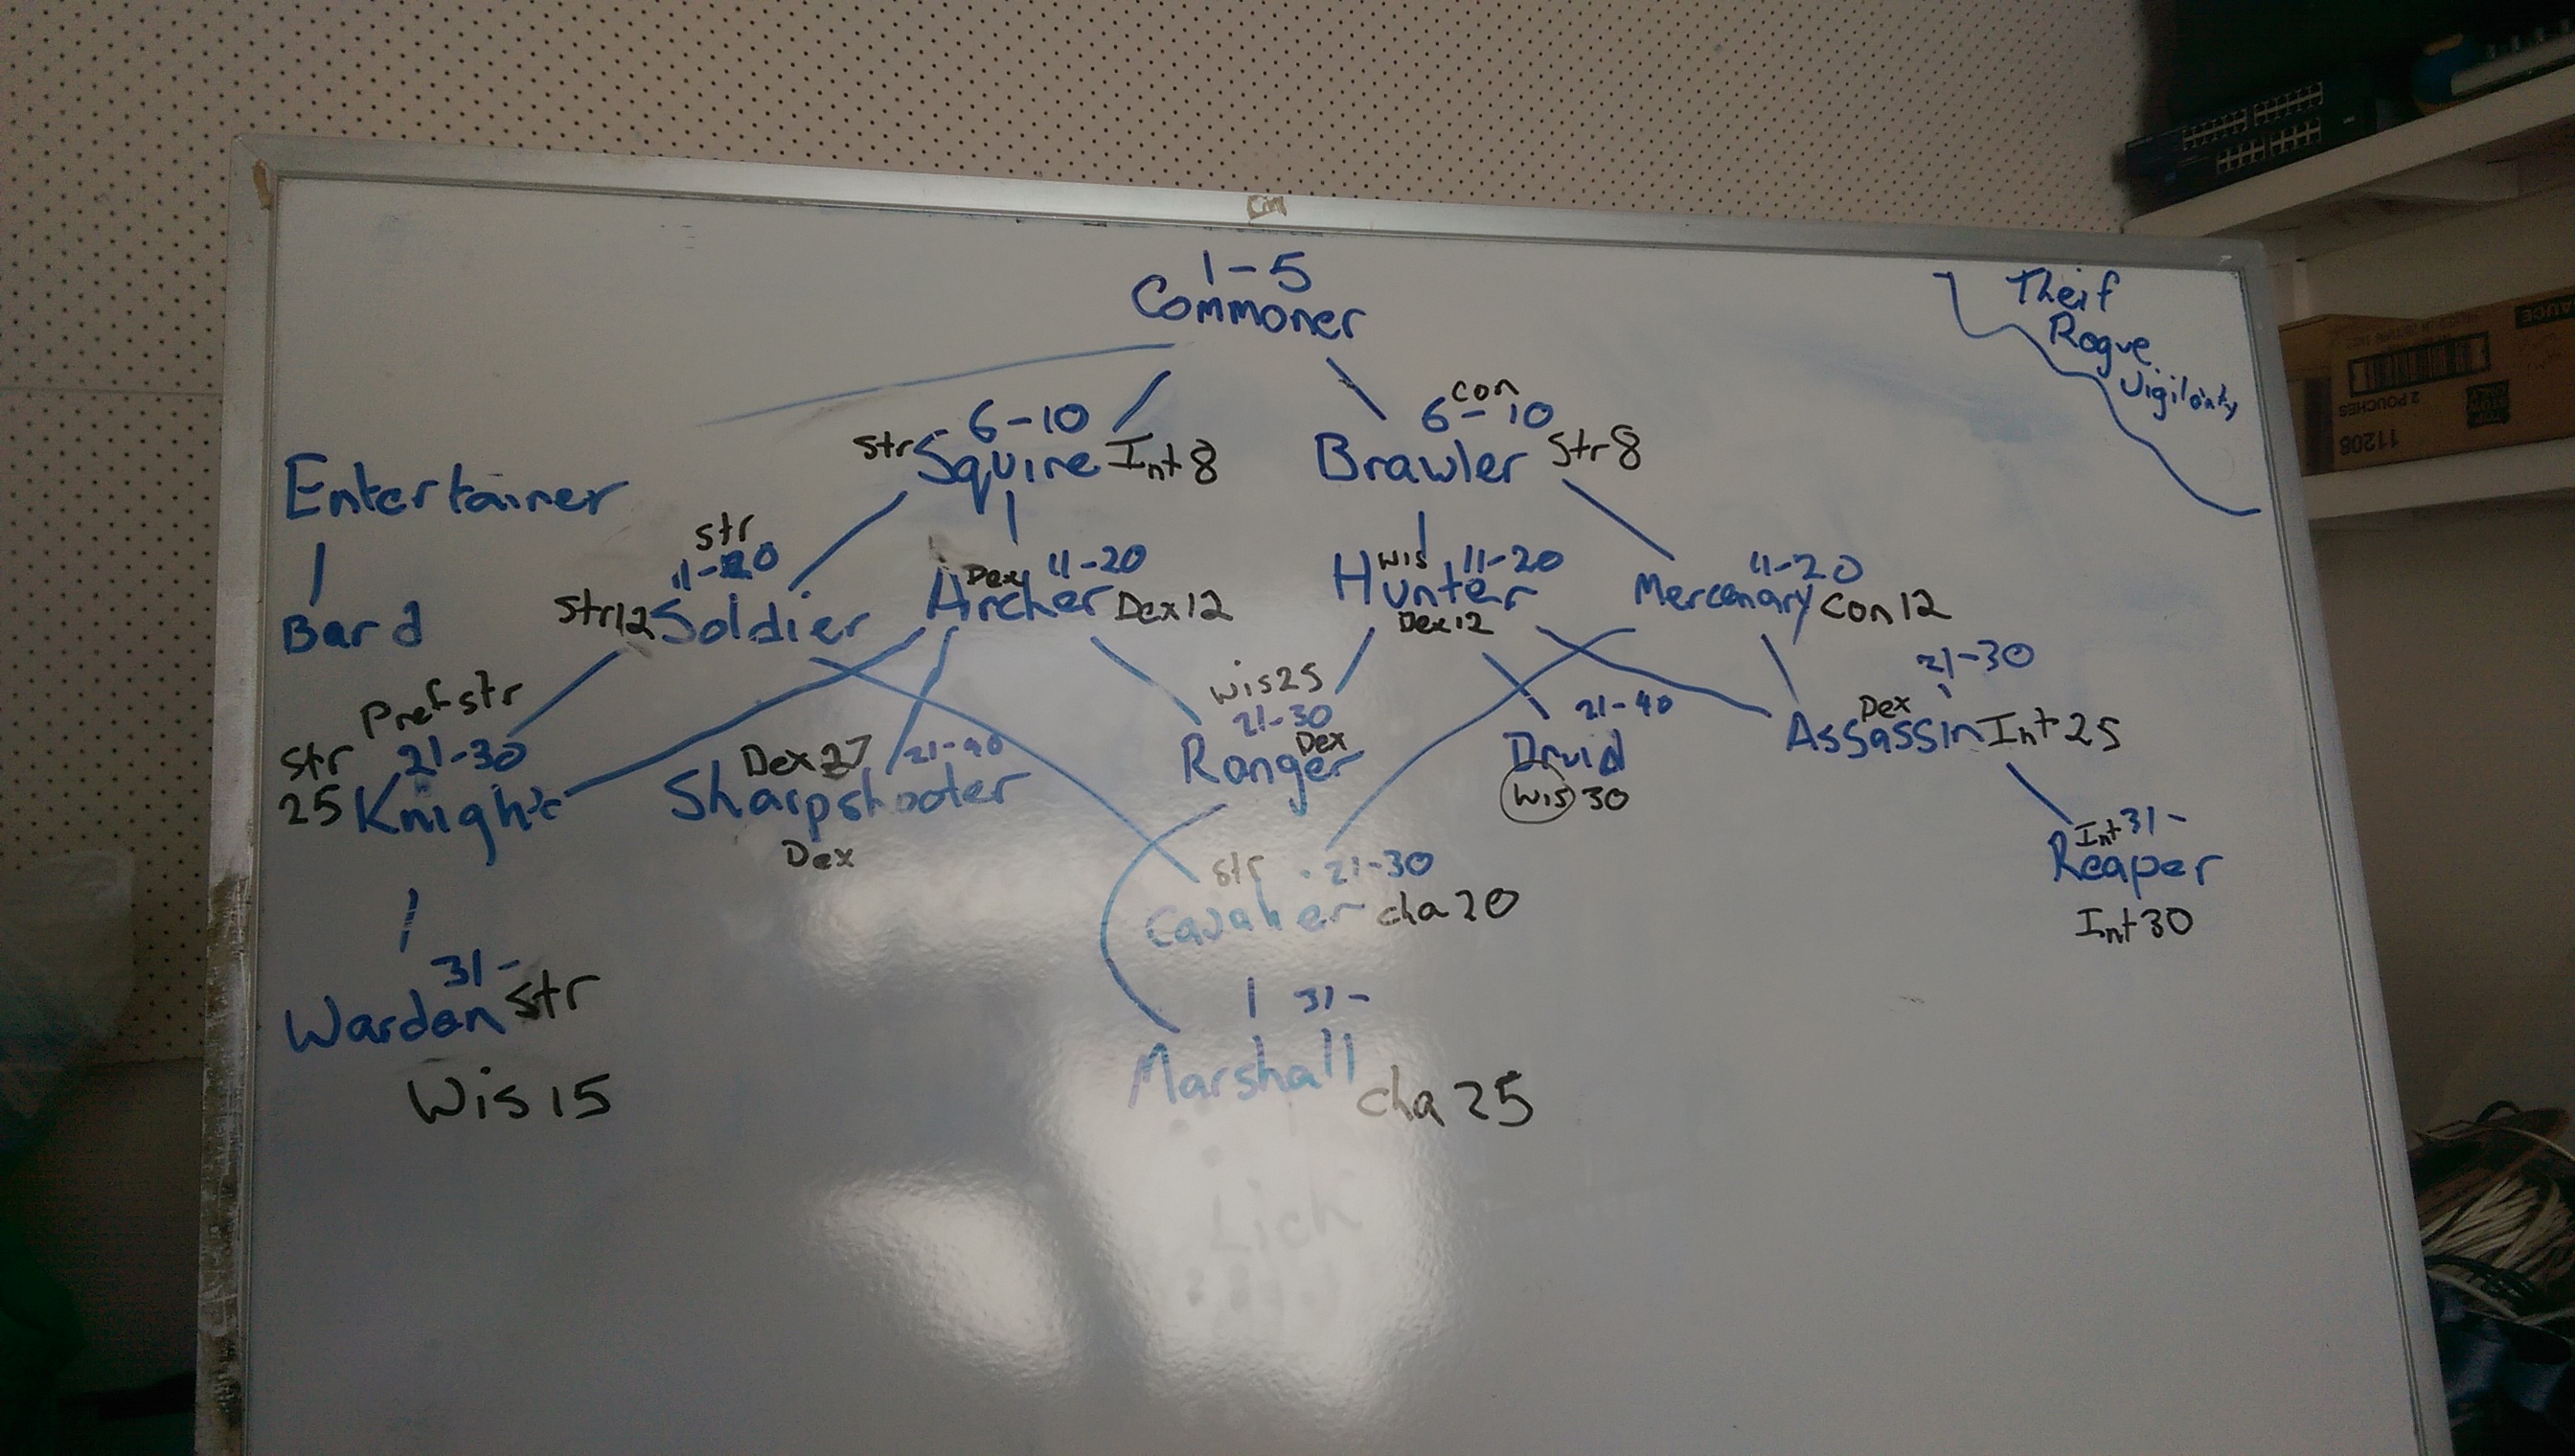 1-5
Commoner
Theif
Rogue
Vigilanty
con
6-10
6-10
Str Squire Int 8
Brawler Str 8
Entertainer
Str
11-20
Str12 Soldier
Dex 11-20
Archer Dex 12
Wis 11-20
Hunter
Dex 12
11-20
Mercenary Con 12
Bard
Pref str
Str 21-30
25 Knight
Dex 27 21-40
Sharpshooter
Dex
Wis 25
21-30
Dex
Ranger
21-40
Druid
Wis 30
21-30
Dex
Assassin Int 25
Int 31-
Reaper
Int 30
Str 21-30
Cavalier cha 20
31-
Warden Str
Wis 15
31-
Marshall
cha 25
Lich
11208
2 POUCHES